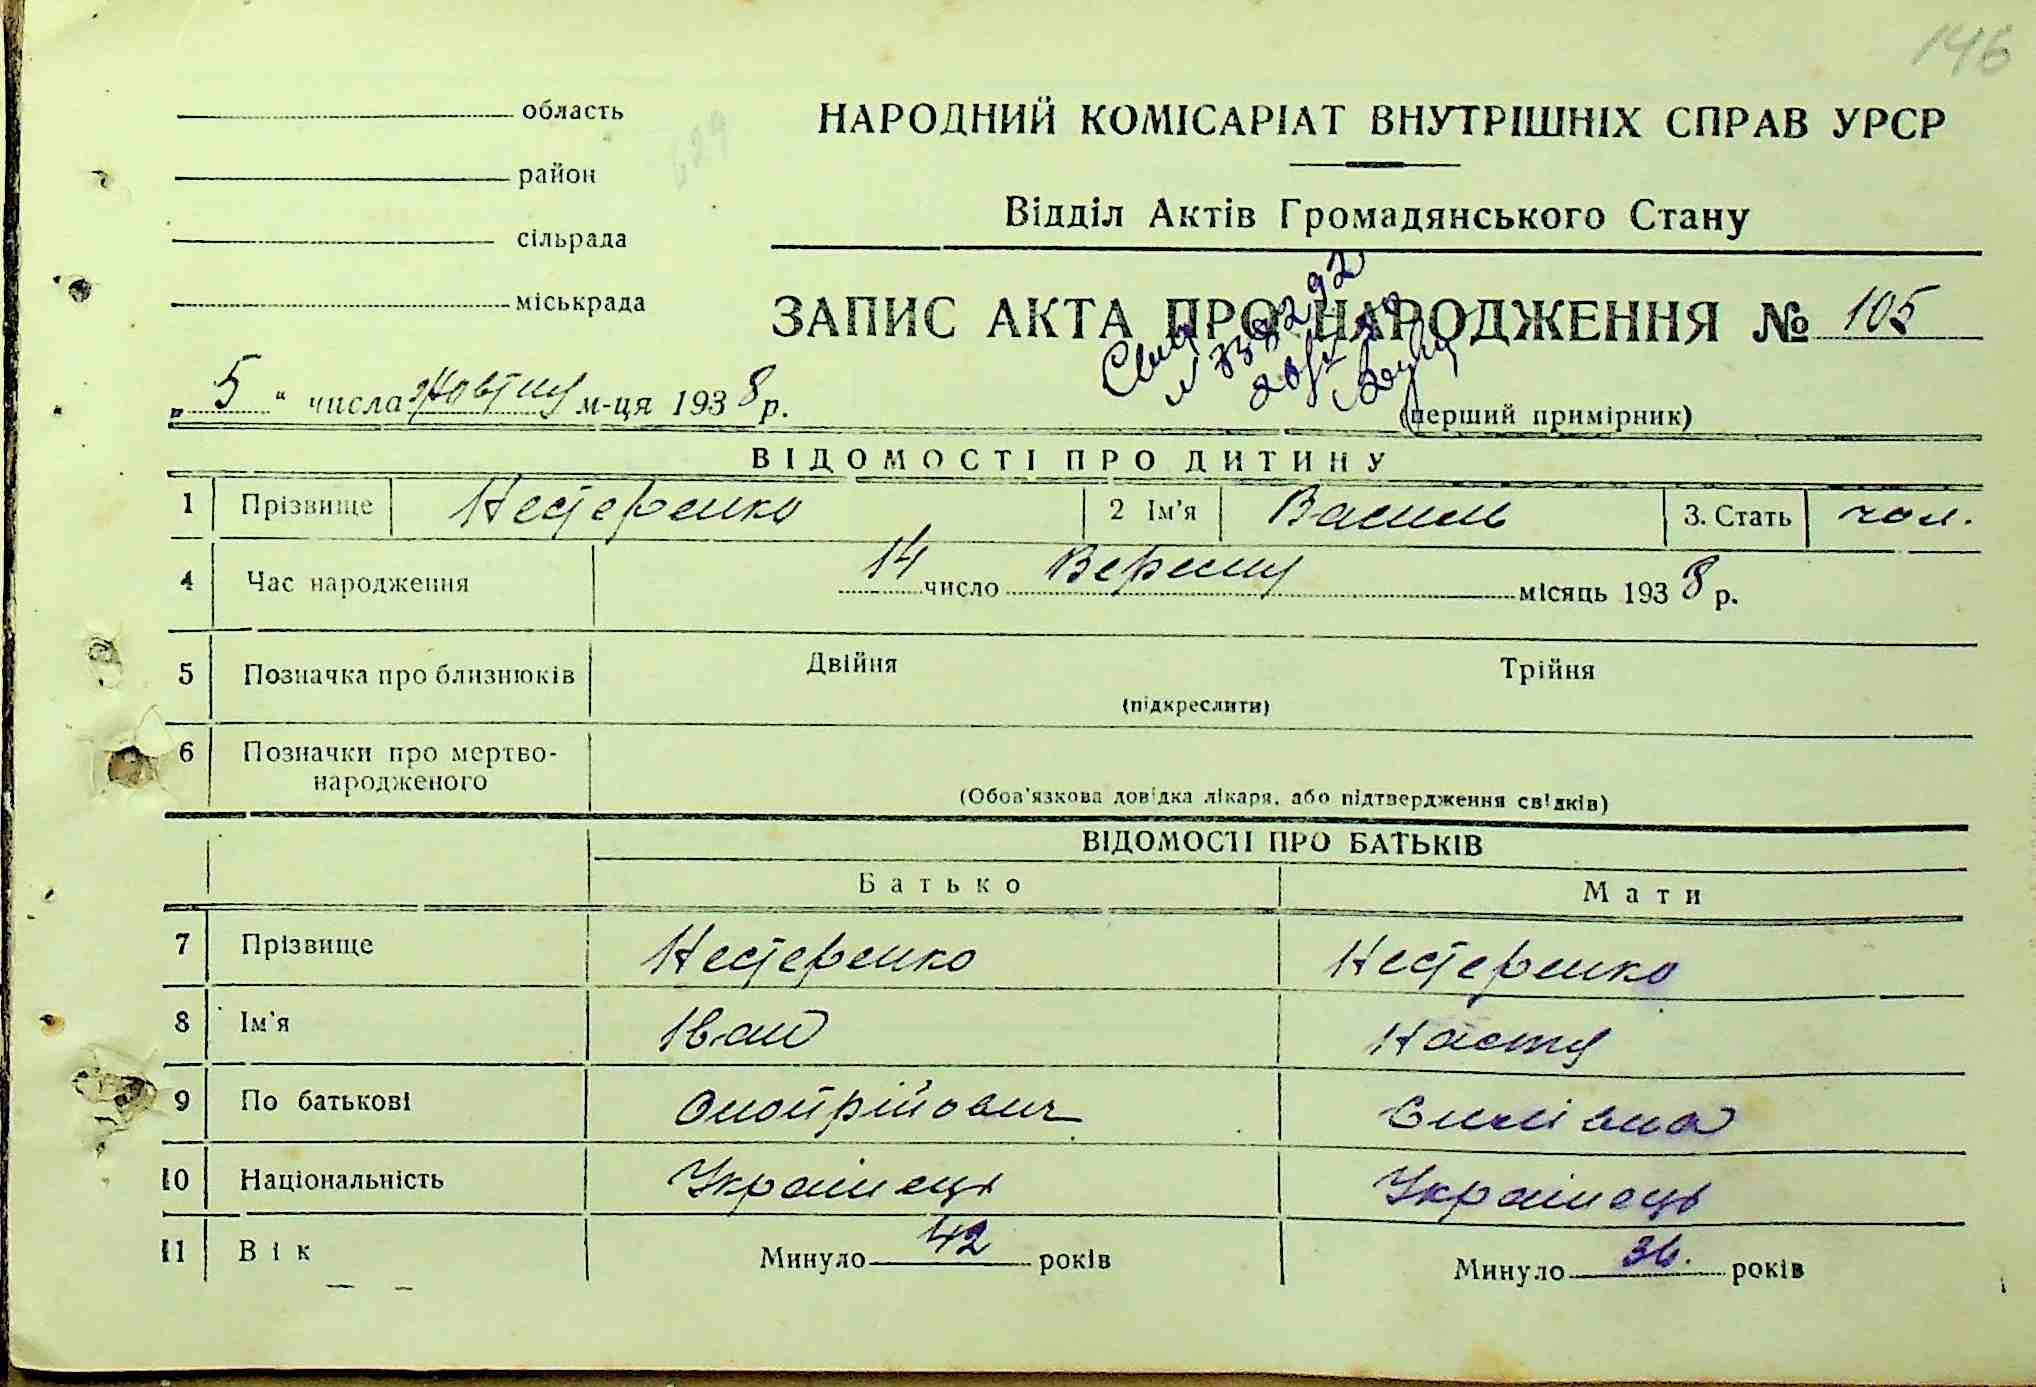 146
область
НАРОДНИЙ КОМІСАРІАТ ВНУТРІШНІХ СПРАВ УРСР
район
Відділ Актів Громадянського Стану
сільрада
міськрада
ЗАПИС АКТА ПРО НАРОДЖЕННЯ № 105
„ 5 “ числа жовтня м-ця 1938 р.
(перший примірник)
ВІДОМОСТІ ПРО ДИТИНУ
1 Прізвище Нестеренко 2 Ім'я Василь 3. Стать чол.
4 Час народження 14 число Вересня місяць 1938 р.
5 Позначка про близнюків Двійня Трійня
(підкреслити)
6 Позначки про мертво-
народженого
(Обов'язкова довідка лікаря, або підтвердження свідків)
ВІДОМОСТІ ПРО БАТЬКІВ
Батько Мати
7 Прізвище Нестеренко Нестеренко
8 Ім'я Іван Настя
9 По батькові
10 Національність Українець Українець
11 Вік Минуло 42 років Минуло 36. років